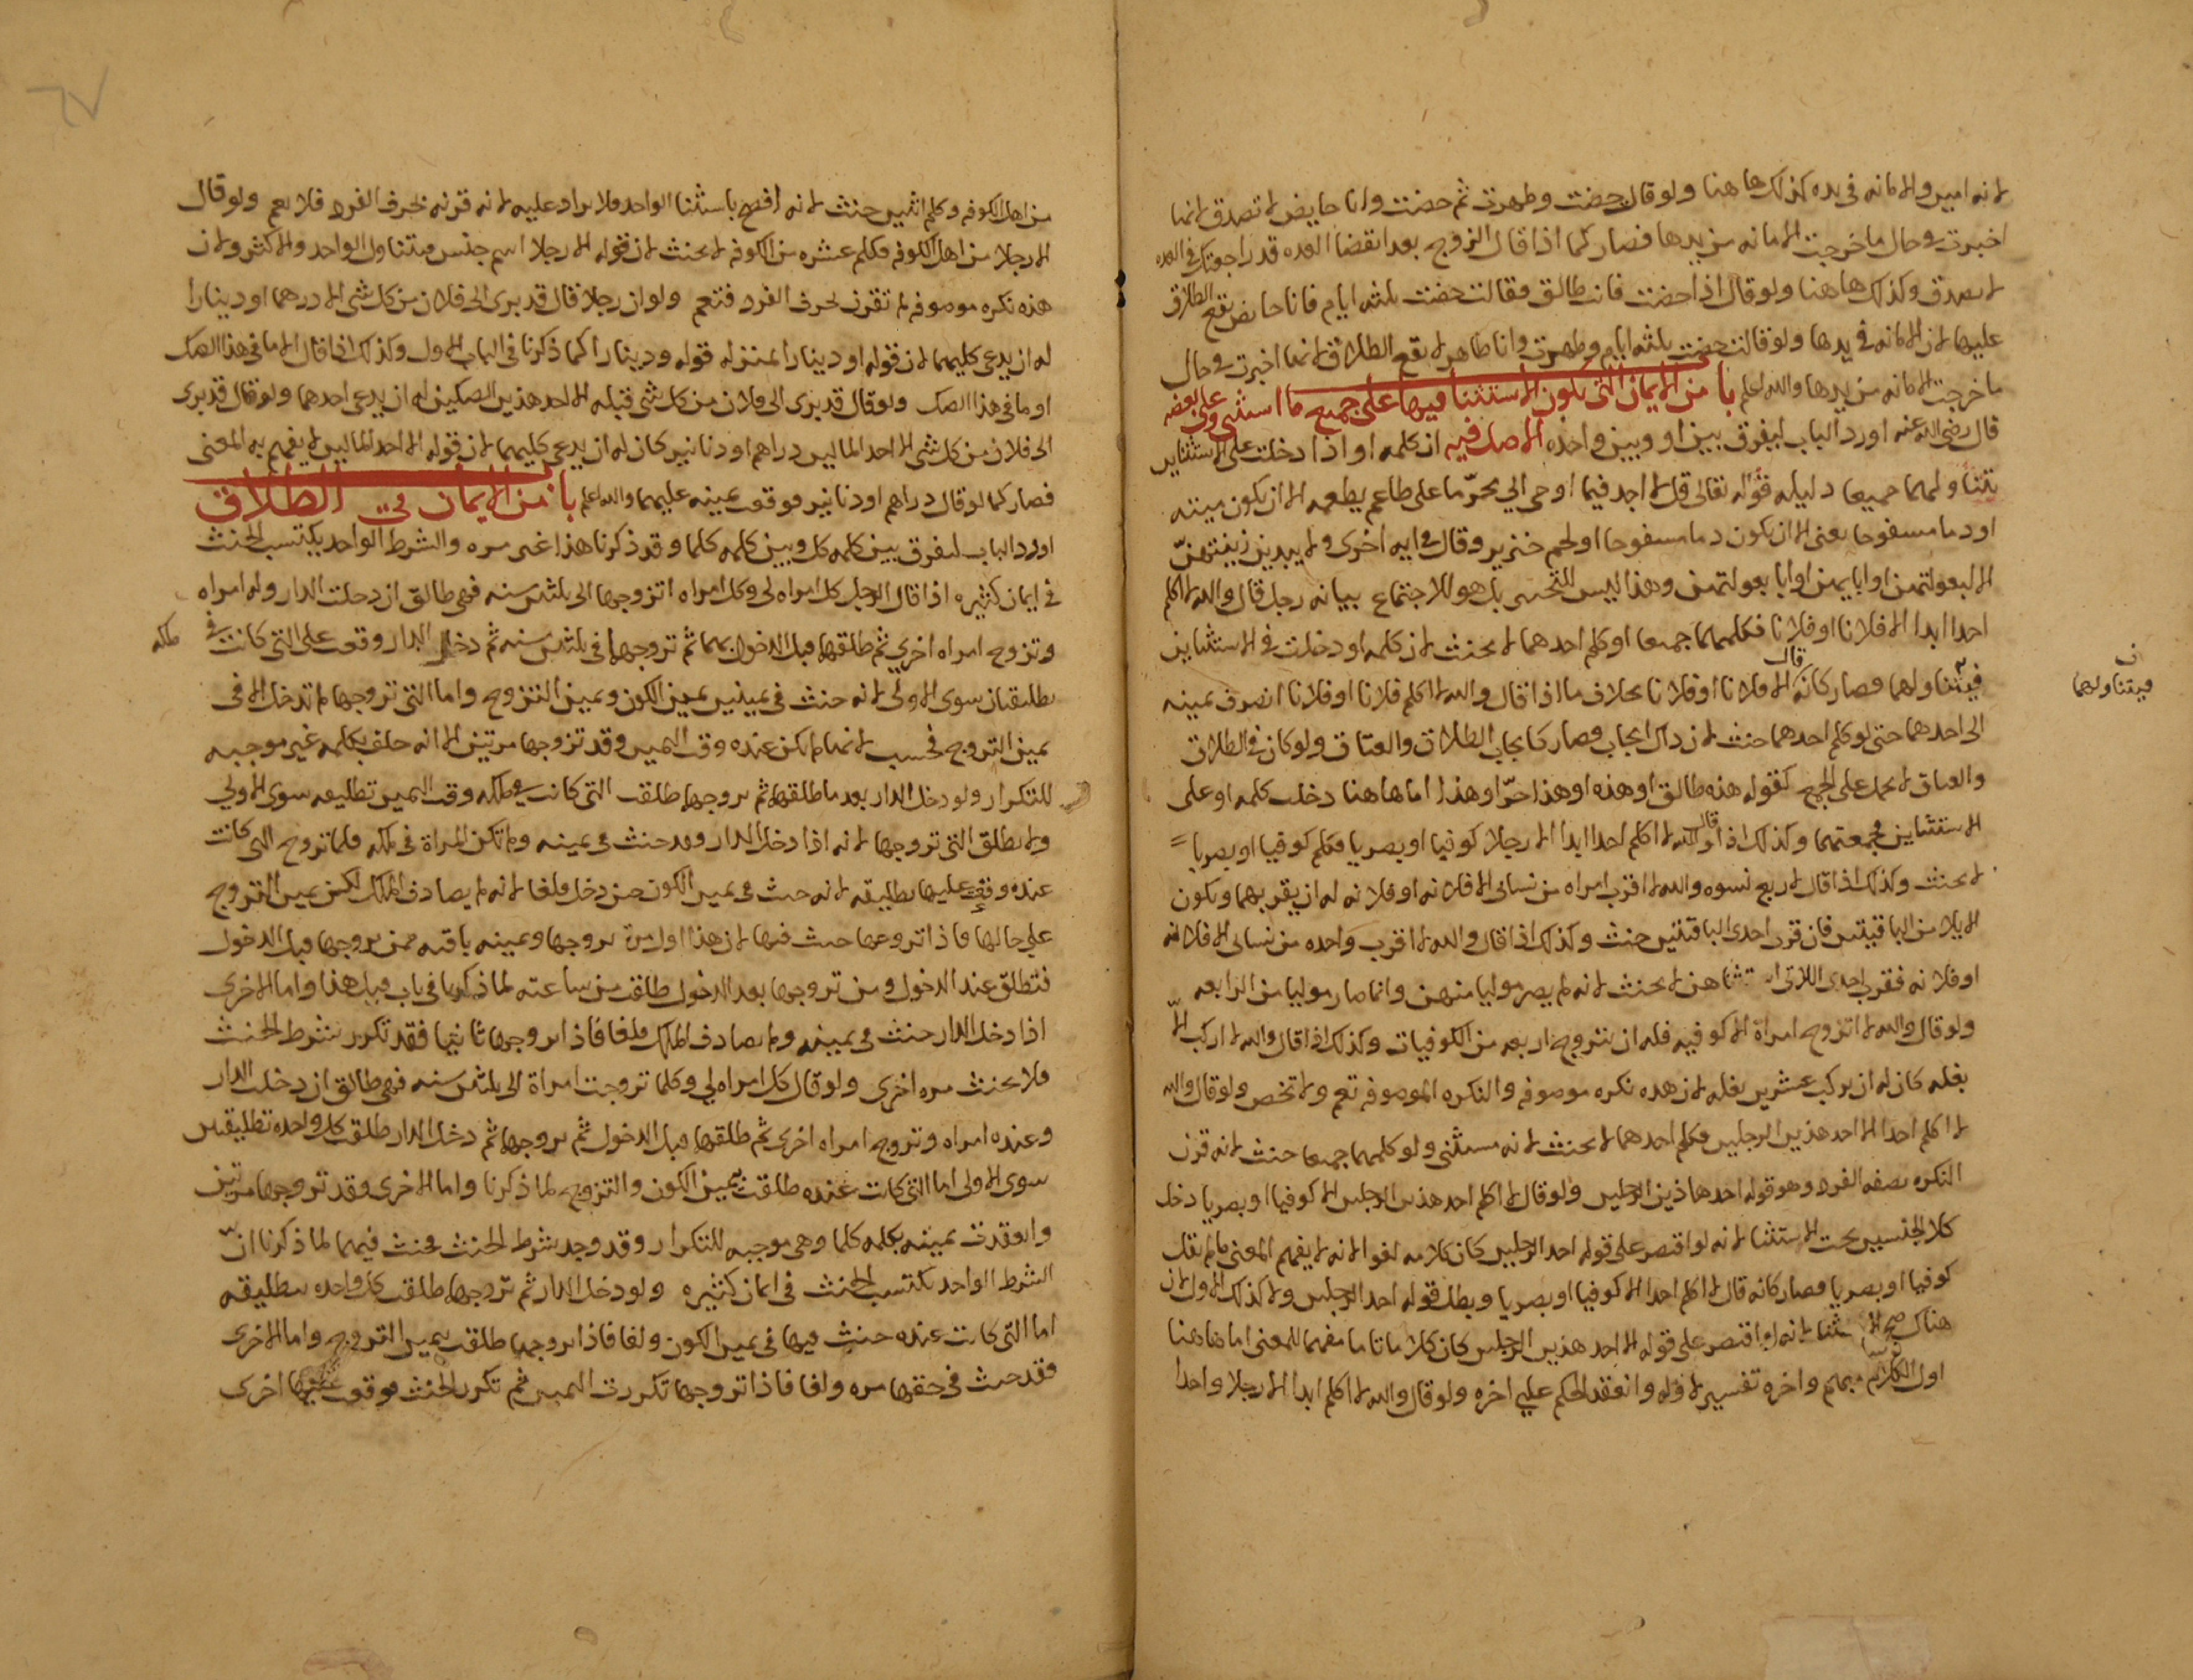 لانه امين والامانه في يده كذلك هاهنا ولو قال حضت وطهرت ثم حضت وانا حايض لا تصدق لانها
اخبرت في حال ما خرجت الامانه من يدها فصار كما اذا قال الزوج بعد انقضا العده قد راجعتك في العده
لا يصدق وكذلك هاهنا ولو قال اذا حضت فانت طالق فقالت حضت ثلثه ايام فانا حايض يقع الطلاق
عليها لان الامانه في يدها ولو قالت حضت ثلثه ايام وطهرت وانا طاهر لا يقع الطلاق لانها اخبرت في حال
ما خرجت الامانه من يدها والله اعلم باب من الايمان التي يكون الاستثنا فيها على جميع ما استثنى وعلى بعضه
قال رضي الله عنه اورد الباب ليفرق بين او وبين واحده الاصل فيه ان كلمه او اذا دخلت على الاستثناين
يتناولهما جميعا دليله قوله تعالى قل لا اجد فيما اوحي الي محرما على طاعم يطعمه الا ان يكون ميته
او دما مسفوحا يعني الا ان يكون دما مسفوحا او لحم خنزير وقال في ايه اخرى ولا يبدين زينتهن
الا لبعولتهن او ابايهن او ابا بعولتهن وهذا ليس للتخيير بل هو للاجتماع بيانه رجل قال والله لا اكلم
احدا ابدا الا فلانا او فلانا فكلمهما جميعا او كلم احدهما لا يحنث لان كلمه او دخلت في الاستثناين
فيتناولهما فصار كانه قال الا فلانا او فلانا بخلاف ما اذا قال والله لا اكلم فلانا او فلانا انصرف يمينه
ن فيتناولهما
الى احدهما حتى لو كلم احدهما حنث لان ذاك ايجاب فصار كايجاب الطلاق والعتاق ولو كان في الطلاق
والعتاق لا يحمل على الجمع كقوله هذه طالق او هذه او هذا حر او هذا اما هاهنا دخلت كلمه او على
الاستثناين فجمعتهما وكذلك اذا قال والله لا اكلم احدا ابدا الا رجلا كوفيا او بصريا فكلم كوفيا او بصريا
لا يحنث وكذلك اذا قال لاربع نسوه والله لا اقرب امراه من نسائي الا فلانه او فلانه له ان يقربهما ويكون
الايلا من الباقيتين فان قرب احدى الباقيتين حنث وكذلك اذا قال والله لا اقرب واحده من نسائي الا فلانه
او فلانه فقرب احدى اللاتي استثناهن لا يحنث لانه لم يصر موليا منهن وانما صار موليا من الرابعه
ولو قال والله لا اتزوج امراة الا كوفيه فله ان يتزوج اربعه من الكوفيات وكذلك اذا قال والله لا اركب الا
بغله كان له ان يركب عشرين بغله لان هذه نكره موصوفه والنكره الموصوفه تعم ولا تخص ولو قال والله
لا اكلم احدا الا احد هذين الرجلين فكلم احدهما لا يحنث لانه مستثنى ولو كلمهما جميعا حنث لانه قرن
النكره بصفه الفرد وهو قوله احد هاذين الرجلين ولو قال لا اكلم احد هذين الرجلين الا كوفيا او بصريا دخل
كلا الجنسين تحت الاستثنا لانه لو اقتصر على قوله احد الرجلين كان كلامه لغوا لانه لا يفهم المعنى ما لم يقل
كوفيا او بصريا فصار كانه قال لا اكلم احدا الا كوفيا او بصريا وبطل قوله احد الرجلين ولا كذلك الاول لان
هناك صح الاستثنا لانه لو اقتصر على قوله الا احد هذين الرجلين كان كلاما تاما مفهما للمعنى اما هاهنا
اول الكلام مبهم واخره تفسير لاوله وانعقد الحكم على اخره ولو قال والله لا اكلم ابدا الا رجلا واحدا
من اهل الكوفه وكلم اثنين حنث لانه افصح باستثنا الواحد فلا يراد عليه لانه قرنه بحرف الفرد فلا يعم ولو قال
الا رجلا من اهل الكوفه فكلم عشره من الكوفه لا يحنث لان قوله الا رجلا اسم جنس يتناول الواحد والاكثر ولان
هذه نكره موصوفه لم تقرن بحرف الفرد فتعم ولو ان رجلا قال قد برئ الي فلان من كل شي الا درهما او دينارا
له ان يدعي كليهما لان قوله او دينارا بمنزله قوله ودينارا كما ذكرنا في الباب الاول وكذلك اذا قال الا ما في هذا الصك
او ما في هذا الصك ولو قال قد برئ الي فلان من كل شي قبله الا احد هذين الصكين له ان يدعي احدهما ولو قال قد برئ
الي فلان من كل شي الا احد المالين دراهم او دنانير كان له ان يدعي كليهما لان قوله الا احد المالين لا يفهم به المعنى
فصار كما لو قال دراهم او دنانير فوقعت يمينه عليهما والله اعلم باب من الايمان في الطلاق
اورد الباب ليفرق بين كلمه كل وبين كلمه كلما وقد ذكرنا هذا غير مره والشرط الواحد يكتسب الحنث
في ايمان كثيره اذا قال الرجل كل امراه لي وكل امراه اتزوجها الى ثلثين سنه فهي طالق ان دخلت الدار وله امراه
وتزوج امراه اخرى ثم طلقها قبل الدخول بهما ثم تزوجها في ثلثين سنه ثم دخل الدار وقعت على التي كانت في
ملكه
تطليقتان سوى الاولى لانه حنث في يمينين يمين الكون ويمين التزوج واما التي تزوجها لم تدخل الا في
يمين التزوج فحسب لانها لم تكن عنده وقت اليمين وقد تزوجها مرتين الا انه حلف بكلمه غير موجبه
للتكرار ولو دخل الدار بعد ما طلقها ثم تزوجها طلقت التي كانت في ملكه وقت اليمين تطليقه سوى الاولى
ولا يطلق التي تزوجها لانه اذا دخل الدار وقد حنث في يمينه ولم تكن المراة في ملكه فلما تزوج التي كانت
عنده وقعت عليها تطليقه لانه حنث في يمين الكون حين دخل ملغا لانه لم يصادف الملك لكن يمين التزوج
على حالها فاذا تزوجها حنث فيها لان هذا اول من تزوجها ويمينه باقيه فمن تزوجها قبل الدخول
فتطلق عند الدخول ومن تزوجها بعد الدخول طلقت من ساعته لما ذكرنا في باب قبل هذا واما الاخرى
اذا دخل الدار حنث في يمينه ولم يصادف الملك ملغا فاذا تزوجها ثانيا فقد تكرر شرط الحنث
فلا يحنث مره اخرى ولو قال كل امراه لي وكلما تزوجت امراة الى ثلثين سنه فهي طالق ان دخلت الدار
وعنده امراه وتزوج امراه اخرى ثم طلقها قبل الدخول ثم تزوجها ثم دخل الدار طلقت كل واحده تطليقتين
سوى الاولى اما التي كانت عنده طلقت بيمين الكون والتزوج لما ذكرنا واما الاخرى وقد تزوجها مرتين
وانعقدت يمينه بكلمه كلما وهي موجبه للتكرار وقد وجد شرط الحنث فحنث فيهما لما ذكرنا ان
الشرط الواحد يكتسب الحنث في ايمان كثيره ولو دخل الدار ثم تزوجها طلقت كل واحده تطليقه
اما التي كانت عنده حنث فيها في يمين الكون ولغا فاذا تزوجها طلقت بيمين التزوج واما الاخرى
فقد حنث في حقها مره ولغا فاذا تزوجها تكررت اليمين ثم تكرر الحنث فوقعت عليها اخرى